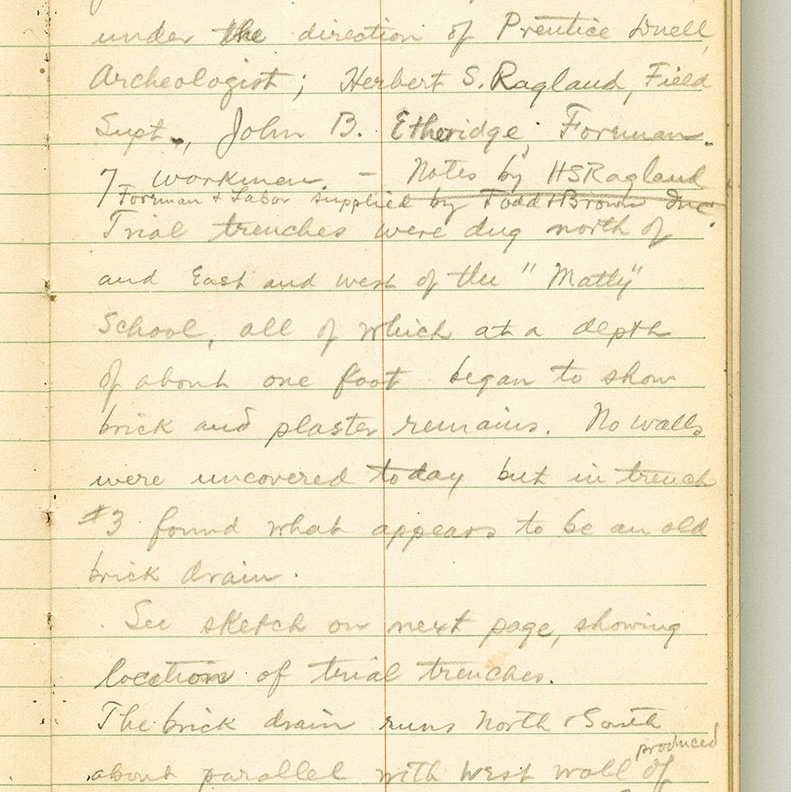 under the direction of Prentice Duell,
Archeologist; Herbert S. Ragland, Field
Supt., John B. Etheridge, Foreman.
7 workmen. - Notes by HSRagland
Foreman & Labor supplied by Todd & Brown Inc.
Trial trenches were dug north of
and East and west of the "Matty"
School, all of which at a depth
of about one foot began to show
brick and plaster remains. No walls
were uncovered today but in trench
#3 found what appears to be an old
brick drain.
See sketch on next page, showing
location of trial trenches.
The brick drain runs North & South
produced
about parallel with West wall of